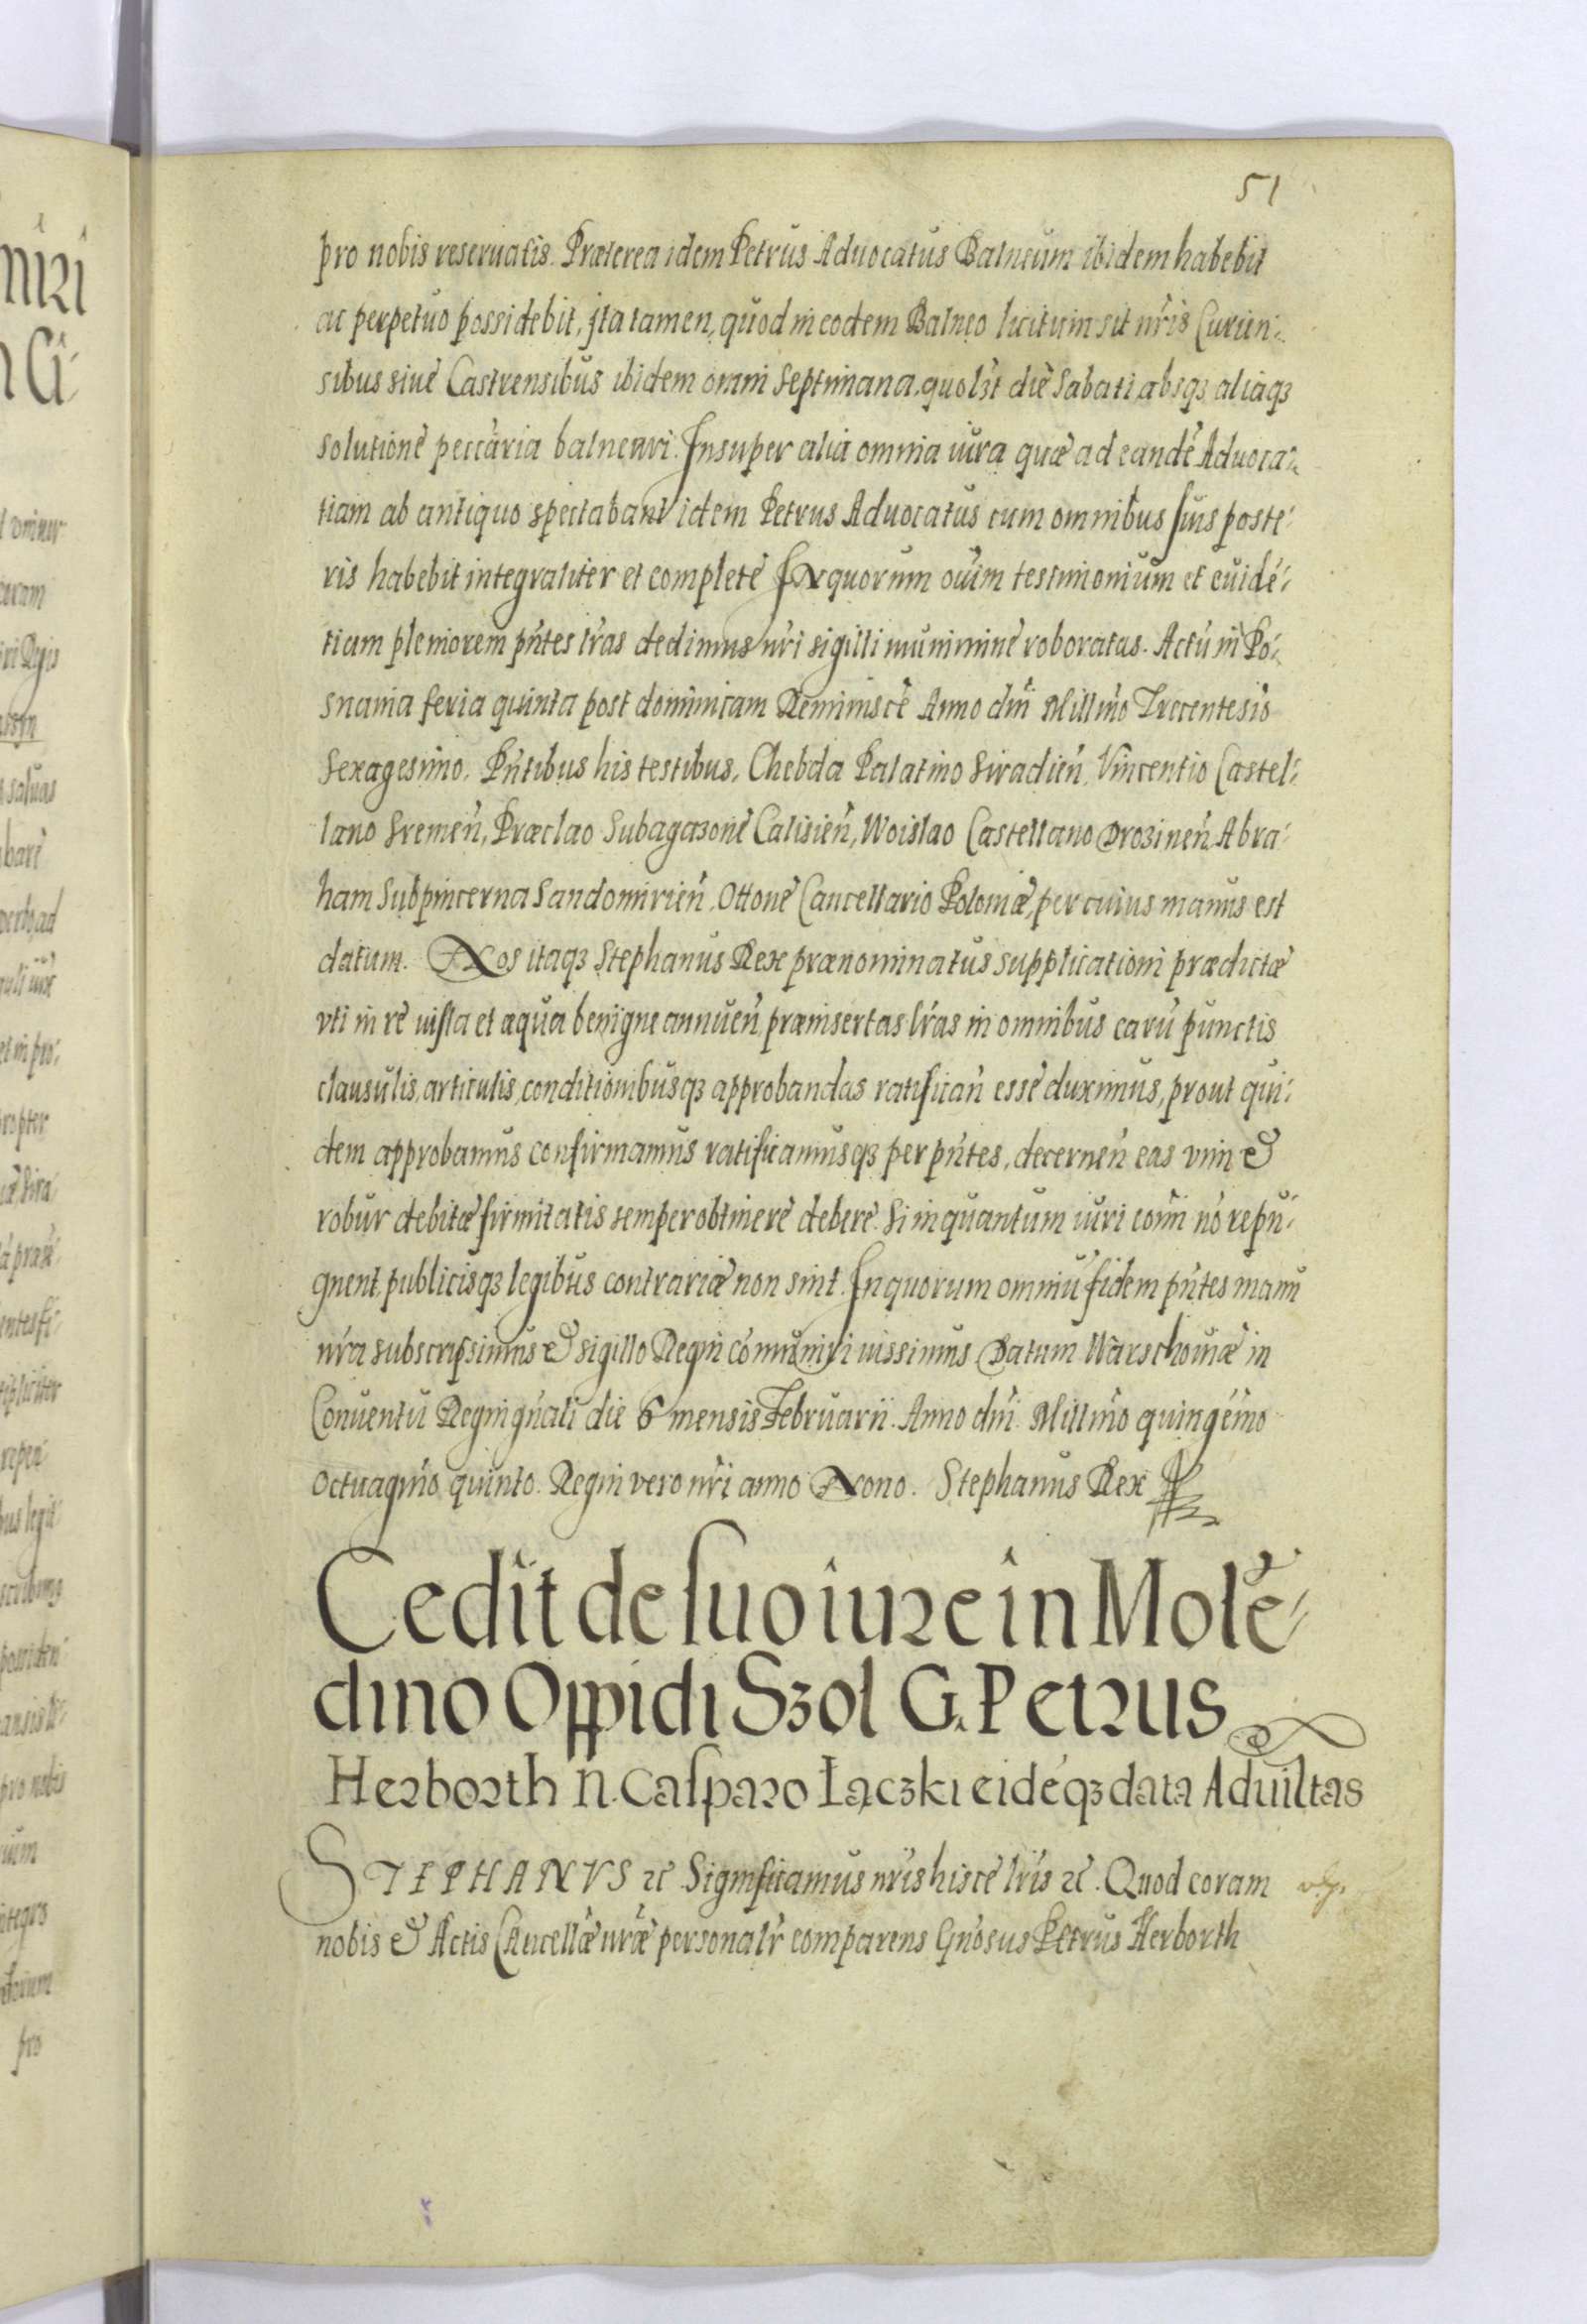 51
pro nobis reseruatis. Præterea idem Petrus Aduocatus Balneum ibidem habebit
ac perpetuo possidebit, jta tamen, quod in eodem Balneo licitum sit nr̃is Curien:
sibus siue Castrensibus ibidem omni septimana, quolꝫt die Sabati, absqꝫ aliaqꝫ
solutione peccaria balneari. Insuper alia omnia iura quæ ad eandẽ Aduoca:
tiam ab antiquo spectabant idem Petrus Aduocatus cum omnibus suis poste:
ris habebit integraliter et complete In quorum oium testimonium et euidẽ:
tiam pleniorem pñtes lr̃as dedimus nr̃i sigilli munimine roboratas. Actũ in Po:
snania feria quinta post dominicam Reminiscẽ Anno dñi Millm̃o Trecentesio
Sexagesimo. Pñtibus his testibus, Chebda Palatino Siradieñ, Vincentio Castel:
lano Sremeñ, Præclao Subagazone Calisieñ, Woislao Castellano Drozineñ Abra:
ham Subpincerna Sandomirieñ, Ottone Cancellario Poloniæ, per cuius manus est
datum. Nos itaqꝫ Stephanus Rex prænominatus supplicationi prædictæ
vti in re iusta et æqua benigne annueñ, præinsertas lr̃as in omnibus earũ punctis
clausulis, articulis, conditionibusqꝫ approbandas ratificañ esse duximus, prout qui:
dem approbamus confirmamus ratificamusqꝫ per pñtes, decerneñ eas vim &
robur debitæ firmitatis semper obtinere debere. Si inquantum iuri com̃i nõ repu:
gnent, publicisqꝫ legibus contrariæ non sint. In quorum omniũ fidem pñtes manu
nr̃a subscripsimus & sigillo Regni cõmuniri iussimus Datum Warschouiæ in
Conuentu Regni gñali die 6 mensis Februarii. Anno dñi Millm̃o quingẽmo
octuagm̃o quinto. Regni vero nr̃i anno Nono. Stephanus Rex
Cedit de suo iure in Molẽ:
dino Oppidi Szol G. Petrus
Herborth N. Casparo Łączki eidẽqꝫ data Aduiltas
STEPHANVS ꝛc̃ Significamus nr̃is hisce lr̃is ꝛc̃. Quod coram
nobis & Actis Cancellæ nr̃æ personalr̃ comparens Gñosus Petrus Herborth